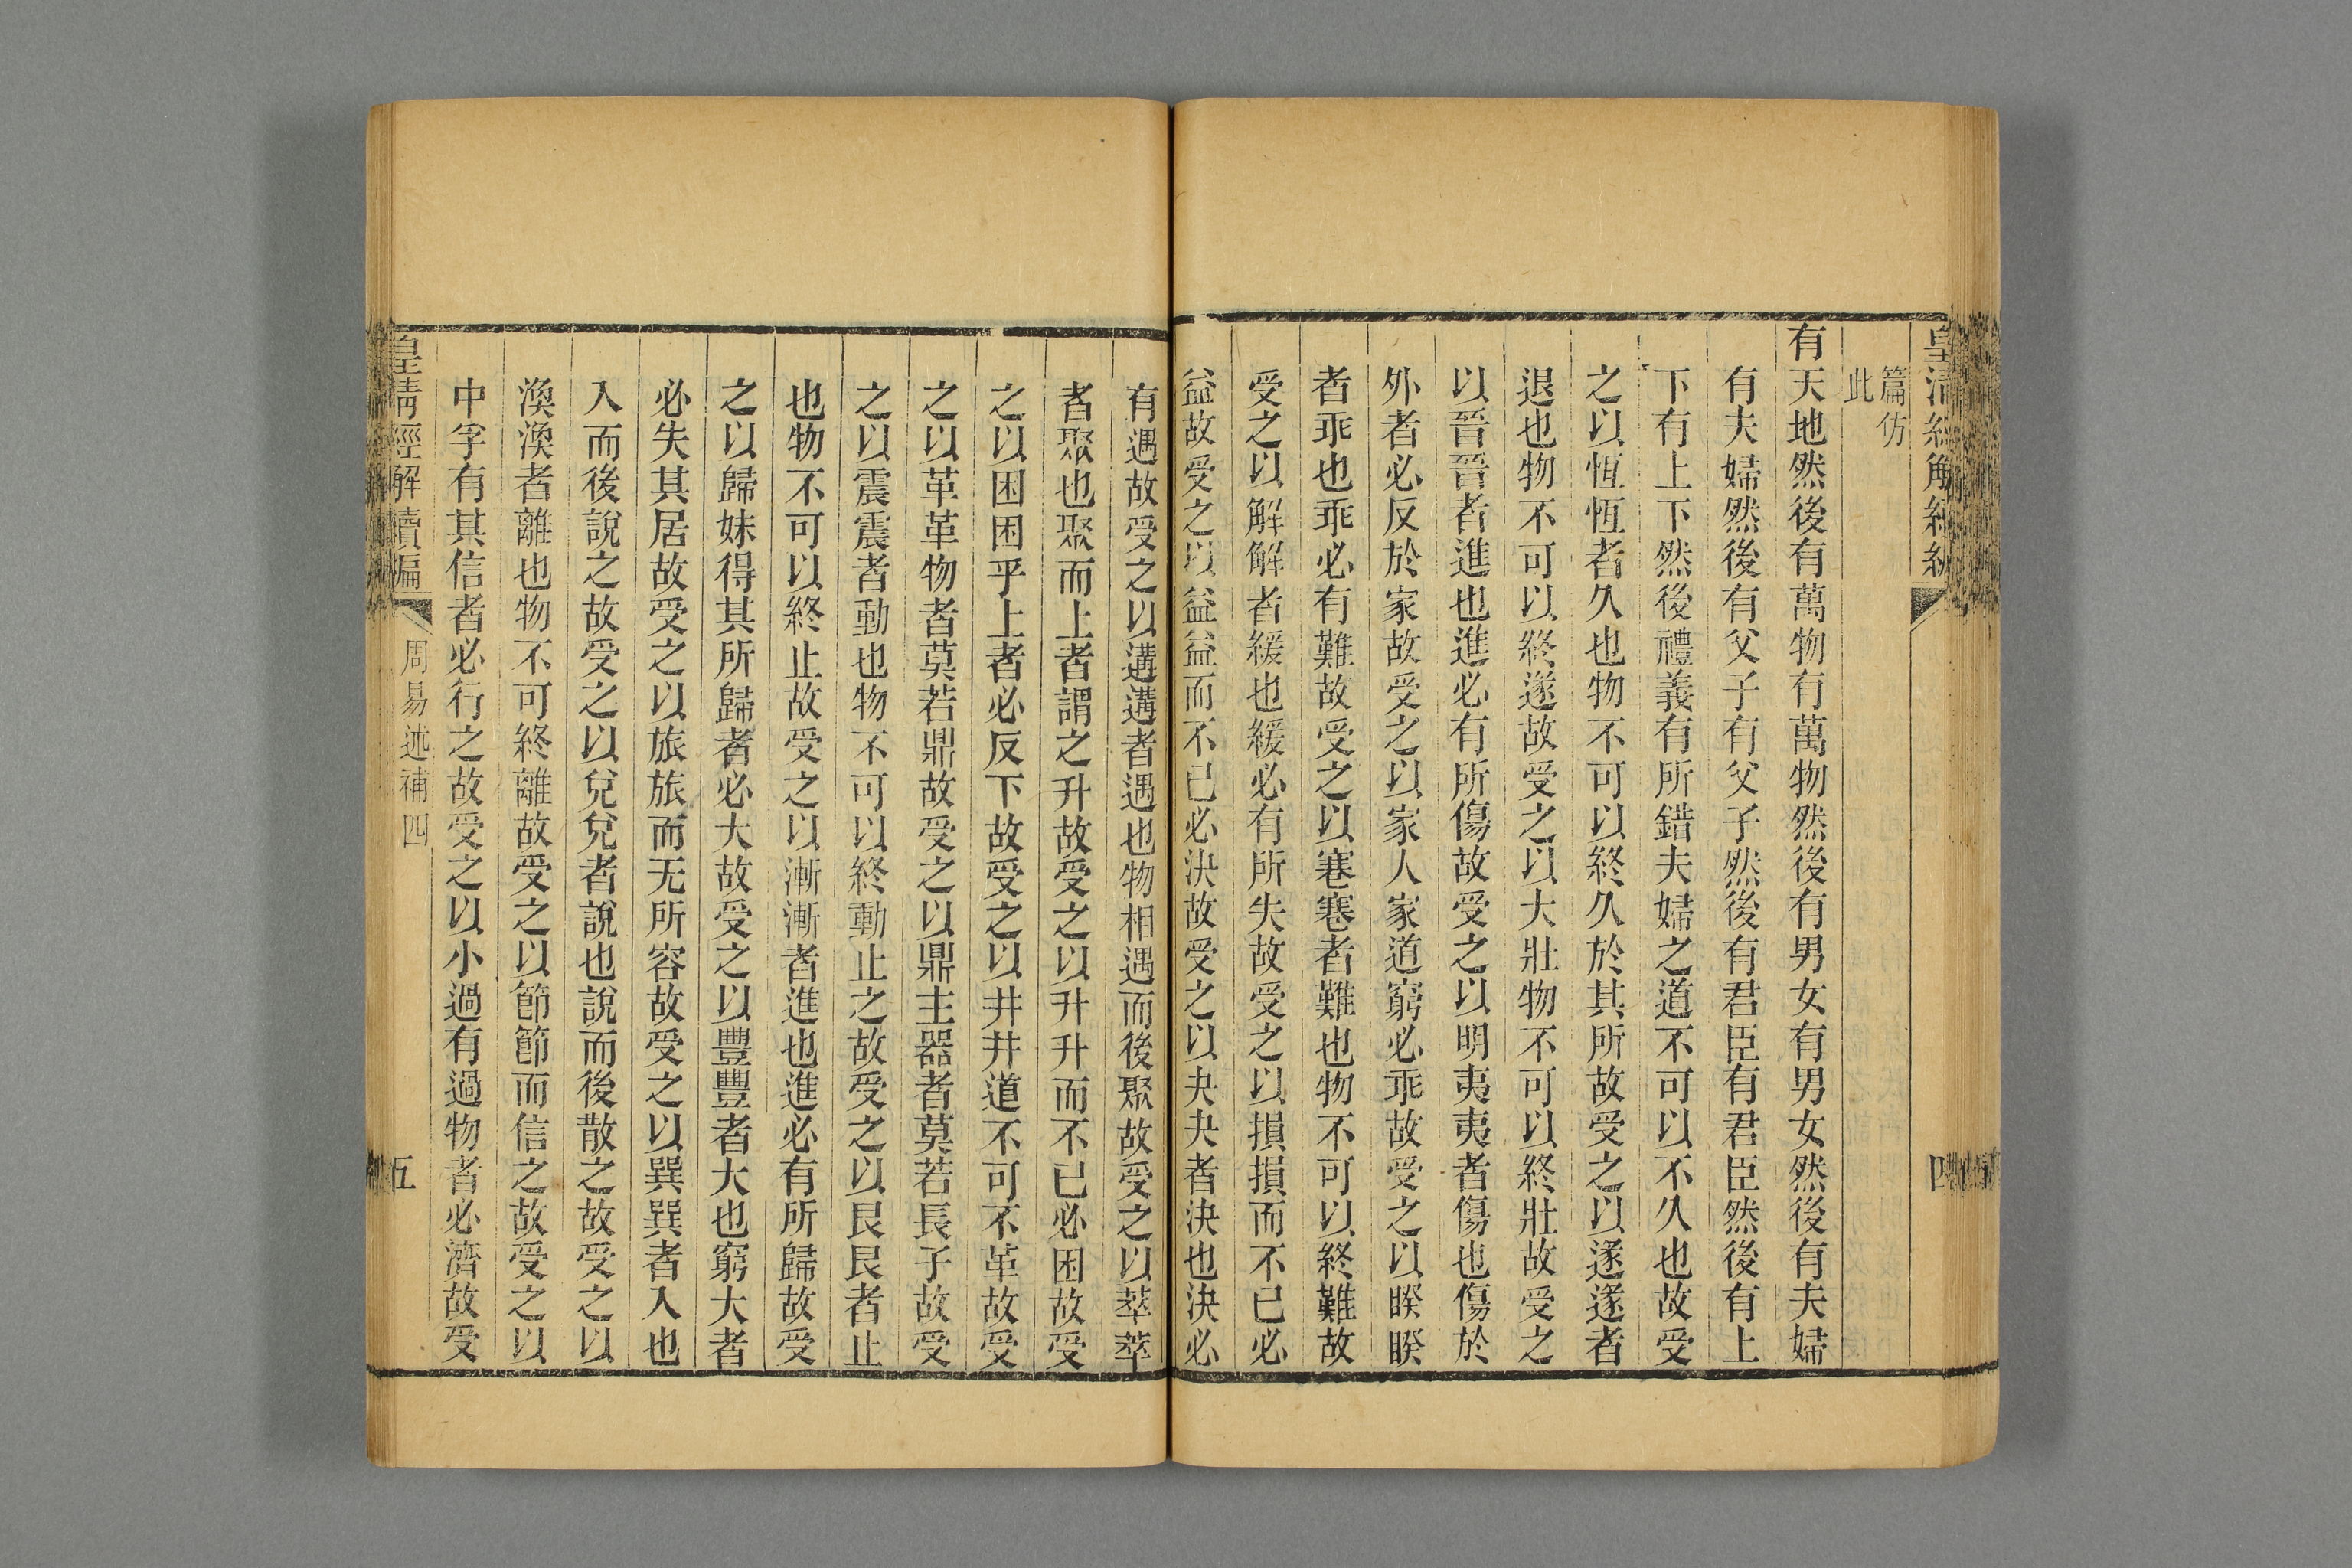 皇清經解續編
四
篇仿
此
有天地然後有萬物有萬物然後有男女有男女然後有夫婦
有夫婦然後有父子有父子然後有君臣有君臣然後有上
下有上下然後禮義有所錯夫婦之道不可以不久也故受
之以恆恆者久也物不可以終久於其所故受之以遂遂者
退也物不可以終遂故受之以大壯物不可以終壯故受之
以晉晉者進也進必有所傷故受之以明夷夷者傷也傷於
外者必反於家故受之以家人家道窮必乖故受之以睽睽
者乖也乖必有難故受之以蹇蹇者難也物不可以終難故
受之以解解者緩也緩必有所失故受之以損損而不已必
益故受之以益益而不已必決故受之以夬夬者決也決必
有遇故受之以遘遘者遇也物相遇而後聚故受之以萃萃
者聚也聚而上者謂之升故受之以升升而不已必困故受
之以困困乎上者必反下故受之以井井道不可不革故受
之以革革物者莫若鼎故受之以鼎主器者莫若長子故受
之以震震者動也物不可以終動止之故受之以艮艮者止
也物不可以終止故受之以漸漸者進也進必有所歸故受
之以歸妹得其所歸者必大故受之以豐豐者大也窮大者
必失其居故受之以旅旅而无所容故受之以巽巽者入也
入而後說之故受之以兌兌者說也說而後散之故受之以
渙渙者離也物不可終離故受之以節節而信之故受之以
中孚有其信者必行之故受之以小過有過物者必濟故受
皇清經解續編
周易述補四
五